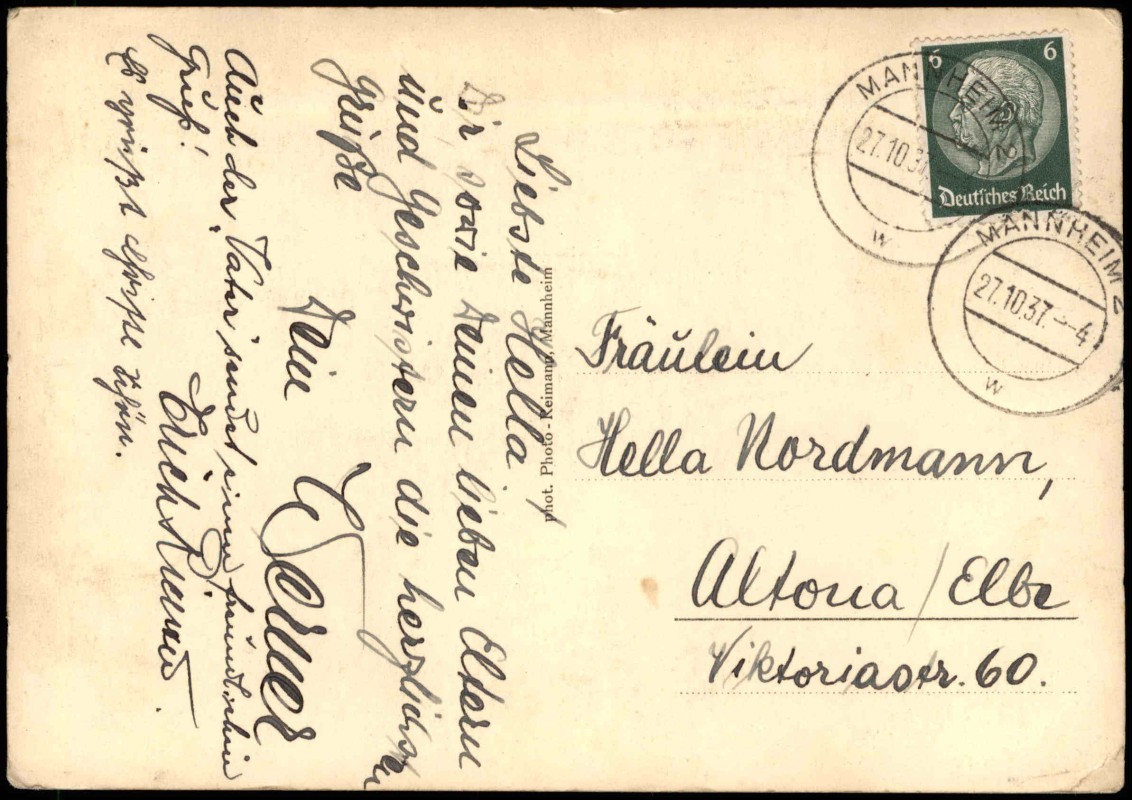 Liebste Hella!
Dir sowie Deinen lieben Eltern
und Geschwistern die herzlichsten
Grüße
Dein Werner
Auch der Vater sendet einen freundlichen
Gruß!
Erich
Es grüßt schön.
phot. Photo-Reimann, Mannheim
6 6
Deutsches Reich
MANNHEIM 2
27.10.37
W
MANNHEIM 2
27.10.37.--4
W
Fräulein
Hella Nordmann,
Altona/Elbe
Viktoriastr. 60.